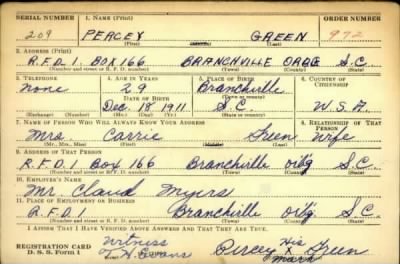 SERIAL NUMBER 1. NAME (Print) ORDER NUMBER
209 PERCEY GREEN 972
(First) (Middle) (Last)
2. ADDRESS (Print)
R.F.D 1. BOX 166 BRANCHVILLE ORGG S.C.
(Number and street or R. F. D. number) (Town) (County) (State)
3. TELEPHONE 4. AGE IN YEARS 5. PLACE OF BIRTH 6. COUNTRY OF
None 29 Branchville CITIZENSHIP
DATE OF BIRTH (Town or county)
Dec 18 1911 S.C U.S.A.
(Exchange) (Number) (Mo.) (Day) (Yr.) (State or country)
7. NAME OF PERSON WHO WILL ALWAYS KNOW YOUR ADDRESS 8. RELATIONSHIP OF THAT
Mrs Carrie Green PERSON Wife
(Mr., Mrs., Miss) (First) (Middle) (Last)
9. ADDRESS OF THAT PERSON
R.F.D 1 Box 166 Branchville S.C.
(Number and street or R. F. D. number) (Town) (County) (State)
10. EMPLOYER'S NAME
Mr. Claud Myers
11. PLACE OF EMPLOYMENT OR BUSINESS
R.F.D 1 Branchville S.C.
(Number and street or R. F. D. number) (Town) (County) (State)
I AFFIRM THAT I HAVE VERIFIED ABOVE ANSWERS AND THAT THEY ARE TRUE.
REGISTRATION CARD Witness His
D. S. S. Form 1 Evans Percey X Green
Mark